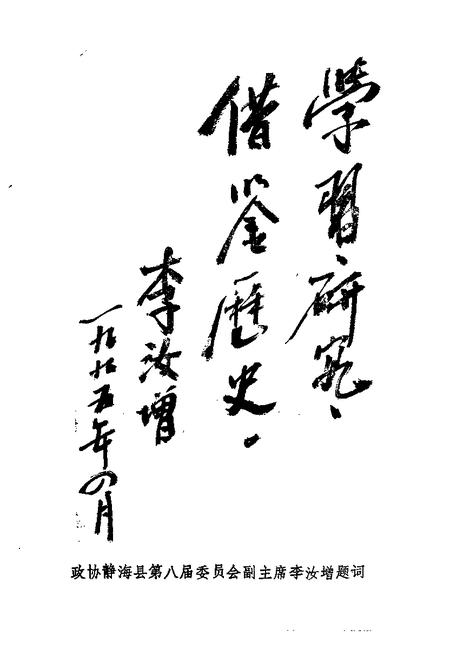 學習、研究、
借鉴歷史.
李汝增
一九九五年四月
政协静海县第八届委员会副主席李汝增题词